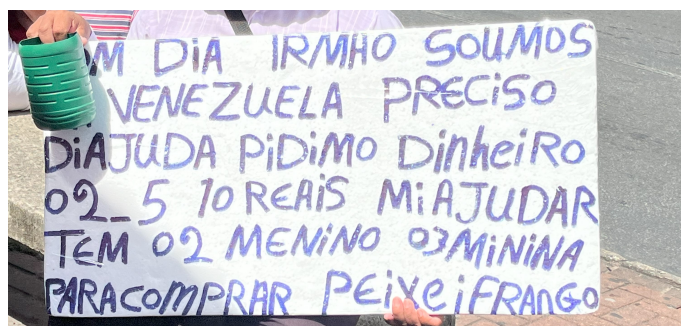 M DIA IRMHO SOUMOS
VENEZUELA PRECISO
DiAJUDA PiDiMO DinheiRO
02_5 10 REAIS MiAJUDAR
TEM 02 MENiNO 03MiNiNA
PARACOMPRAR PEiXEiFRANGO